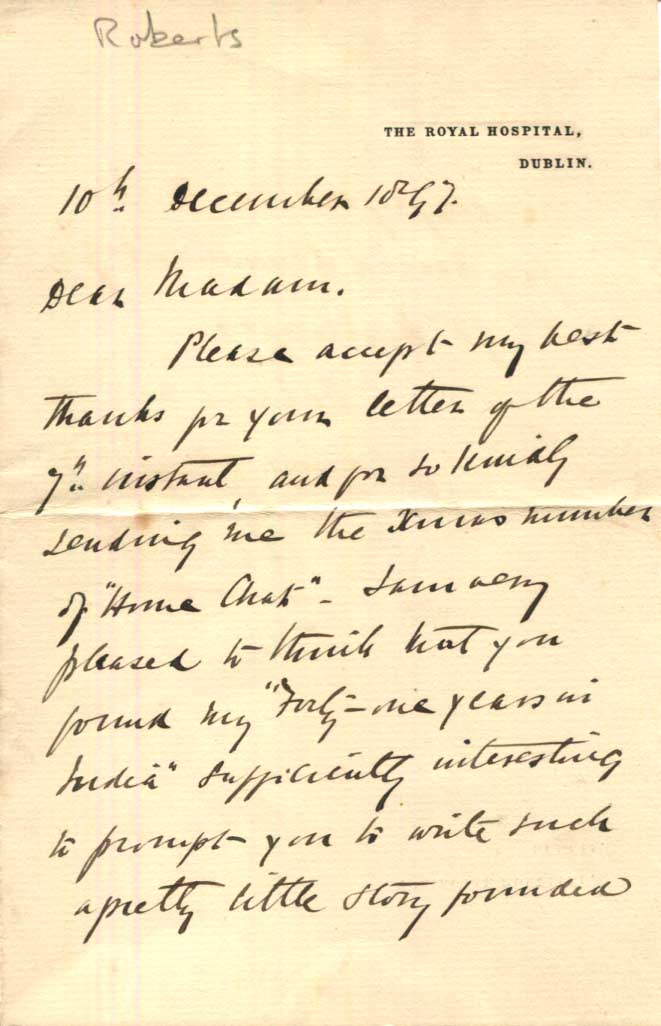 Roberts
THE ROYAL HOSPITAL,
DUBLIN.
10th December 1897.
Dear Madam.
Please accept my best
thanks for your letter of the
7th instant, and for so kindly
sending me the Xmas number
of "Home Chat" - I am very
pleased to think that you
found my "Forty-one years in
India" sufficiently interesting
to prompt you to write such
a pretty little story founded